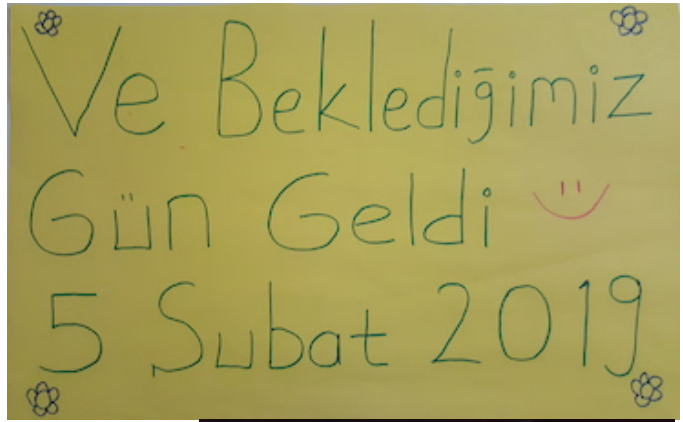 Ve Beklediğimiz
Gün Geldi
5 Şubat 2019